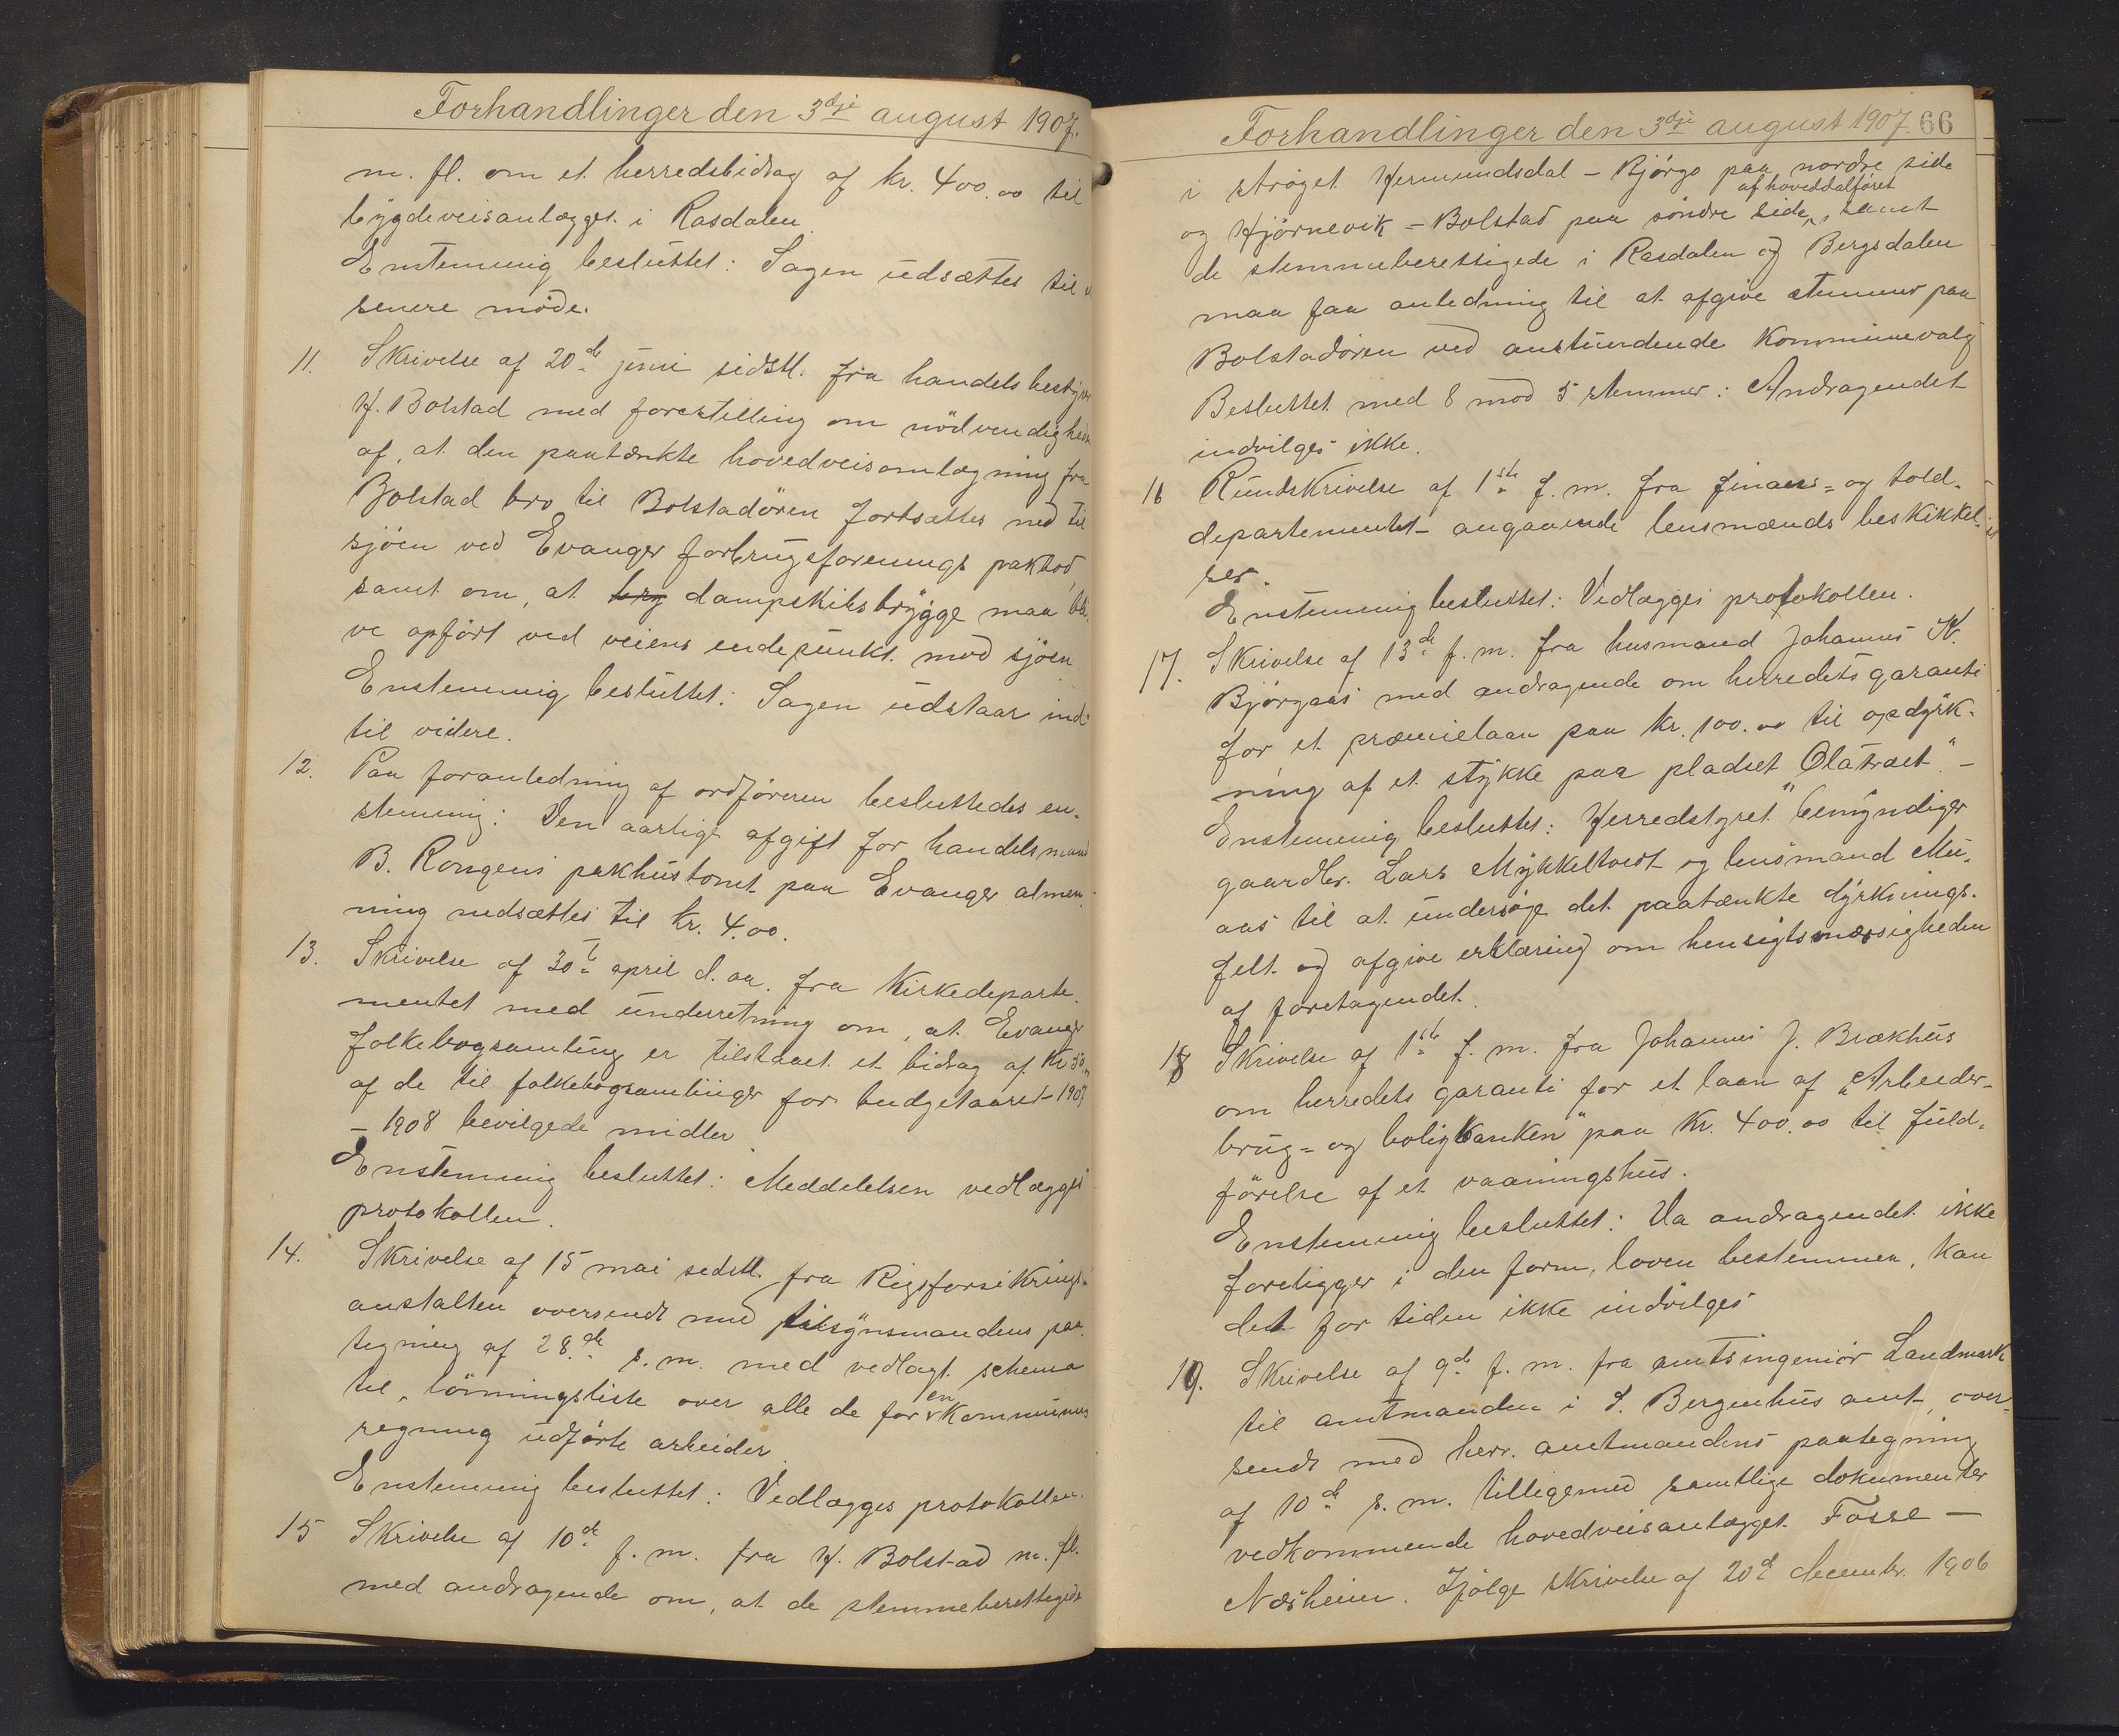 Forhandlinger den 3dje august 1907.
m. fl. om et herredsbidrag af kr. 400.00 til
bygdeveisanlægget i Rasdalen.
Enstemmig besluttet: Sagen udsættes til
senere møde.
11. Skrivelse af 20de juni sidstl. fra handelsbestyrer
H. Bolstad med forestilling om nödvendigheden
af, at den paatænkte hovedveisomlægning fra
Bolstad bro til Bolstadören fortsættes ned til
sjöen ved Evanger forbrugsforenings pakbod,
samt om, at bry dampskibsbrygge maa bli-
ve opfört ved veiens endepunkt mod sjöen.
Enstemmig besluttet: Sagen udstaar ind-
til videre.
12. Paa foranledning af ordföreren besluttedes en-
stemmig: Den aarlige afgift for handelsmand
B. Rongens pakhustomt paa Evanger almen-
ning nedsættes til kr. 4.00.
13. Skrivelse af 30te april d. aa. fra Kirkedeparte-
mentet med underretning om, at Evanger
folkebogsamling er tilstaaet et bidrag af kr 50
af de til folkebogsamlinger for budgetaaret 1907
– 1908 bevilgede midler
Enstemmig besluttet: Meddelelsen vedlægges
protokollen.
14. Skrivelse af 15 mai sidstl. fra Rigsforsikrings-
anstalten oversendt med tilsynsmandens paa-
tegning af 28de s. m. med vedlagt schema
til lönningsliste over alle de for kommunens
en
regning udförte arbeider.
Enstemmig besluttet: Vedlægges protokollen.
15 Skrivelse af 10de f. m. fra H. Bolstad m. fl.
med andragende om, at de stemmeberettigede
Forhandlinger den 3dje august 1907. 66
i strøget Hermundsdal – Bjørgo paa nordre side
af hoveddalföret
og Hjörnevik – Bolstad paa söndre side, samt
de stemmeberettigede i Rasdalen og Bergsdalen
maa faa anledning til at afgive stemmer paa
Bolstadören ved anstundende kommunevalg
Besluttet med 8 mod 5 stemmer: Andragendet
indvilges ikke.
16 Rundskrivelse af 1ste f. m. fra finans- og told-
departementet angaaende lensmænds beskikkel-
ser.
Enstemmig besluttet: Vedlægges protokollen.
17. Skrivelse af 13de f. m. fra husmand Johannes K.
Bjørgaas med andragende om herredets garanti
for et præmielaan paa kr. 100.00 til opdyrk-
ning af et stykke paa pladset "Olatræet". –
Enstemmig besluttet: Herredstyret bemyndiger
gaardbr. Lars Mykkeltvedt og lensmand Mu-
aas til at undersöge det paatænkte dyrknings-
felt og afgive erklæring om hensigtsmæssigheden
af foretagendet.
18 Skrivelse af 1ste f. m. fra Johannes J. Brækhus
om herredets garanti for et laan af „Arbeider-
brug- og boligbanken" paa kr. 400.00 til fuld-
förelse af et vaaningshus.
Enstemmig besluttet: Da andragendet ikke
foreligger i den form, loven bestemmer, kan
det for tiden ikke indvilges
19. Skrivelse af 9de f. m. fra amtsingeniör Landmark
til amtmanden i S. Bergenhus amt, over-
sendt med herr. amtmandens paategning
af 10de s. m. tilligemed samtlige dokumenter
vedkommende hovedveisanlægget Fosse –
Næsheim. Ifølge skrivelse af 20de decembr. 1906